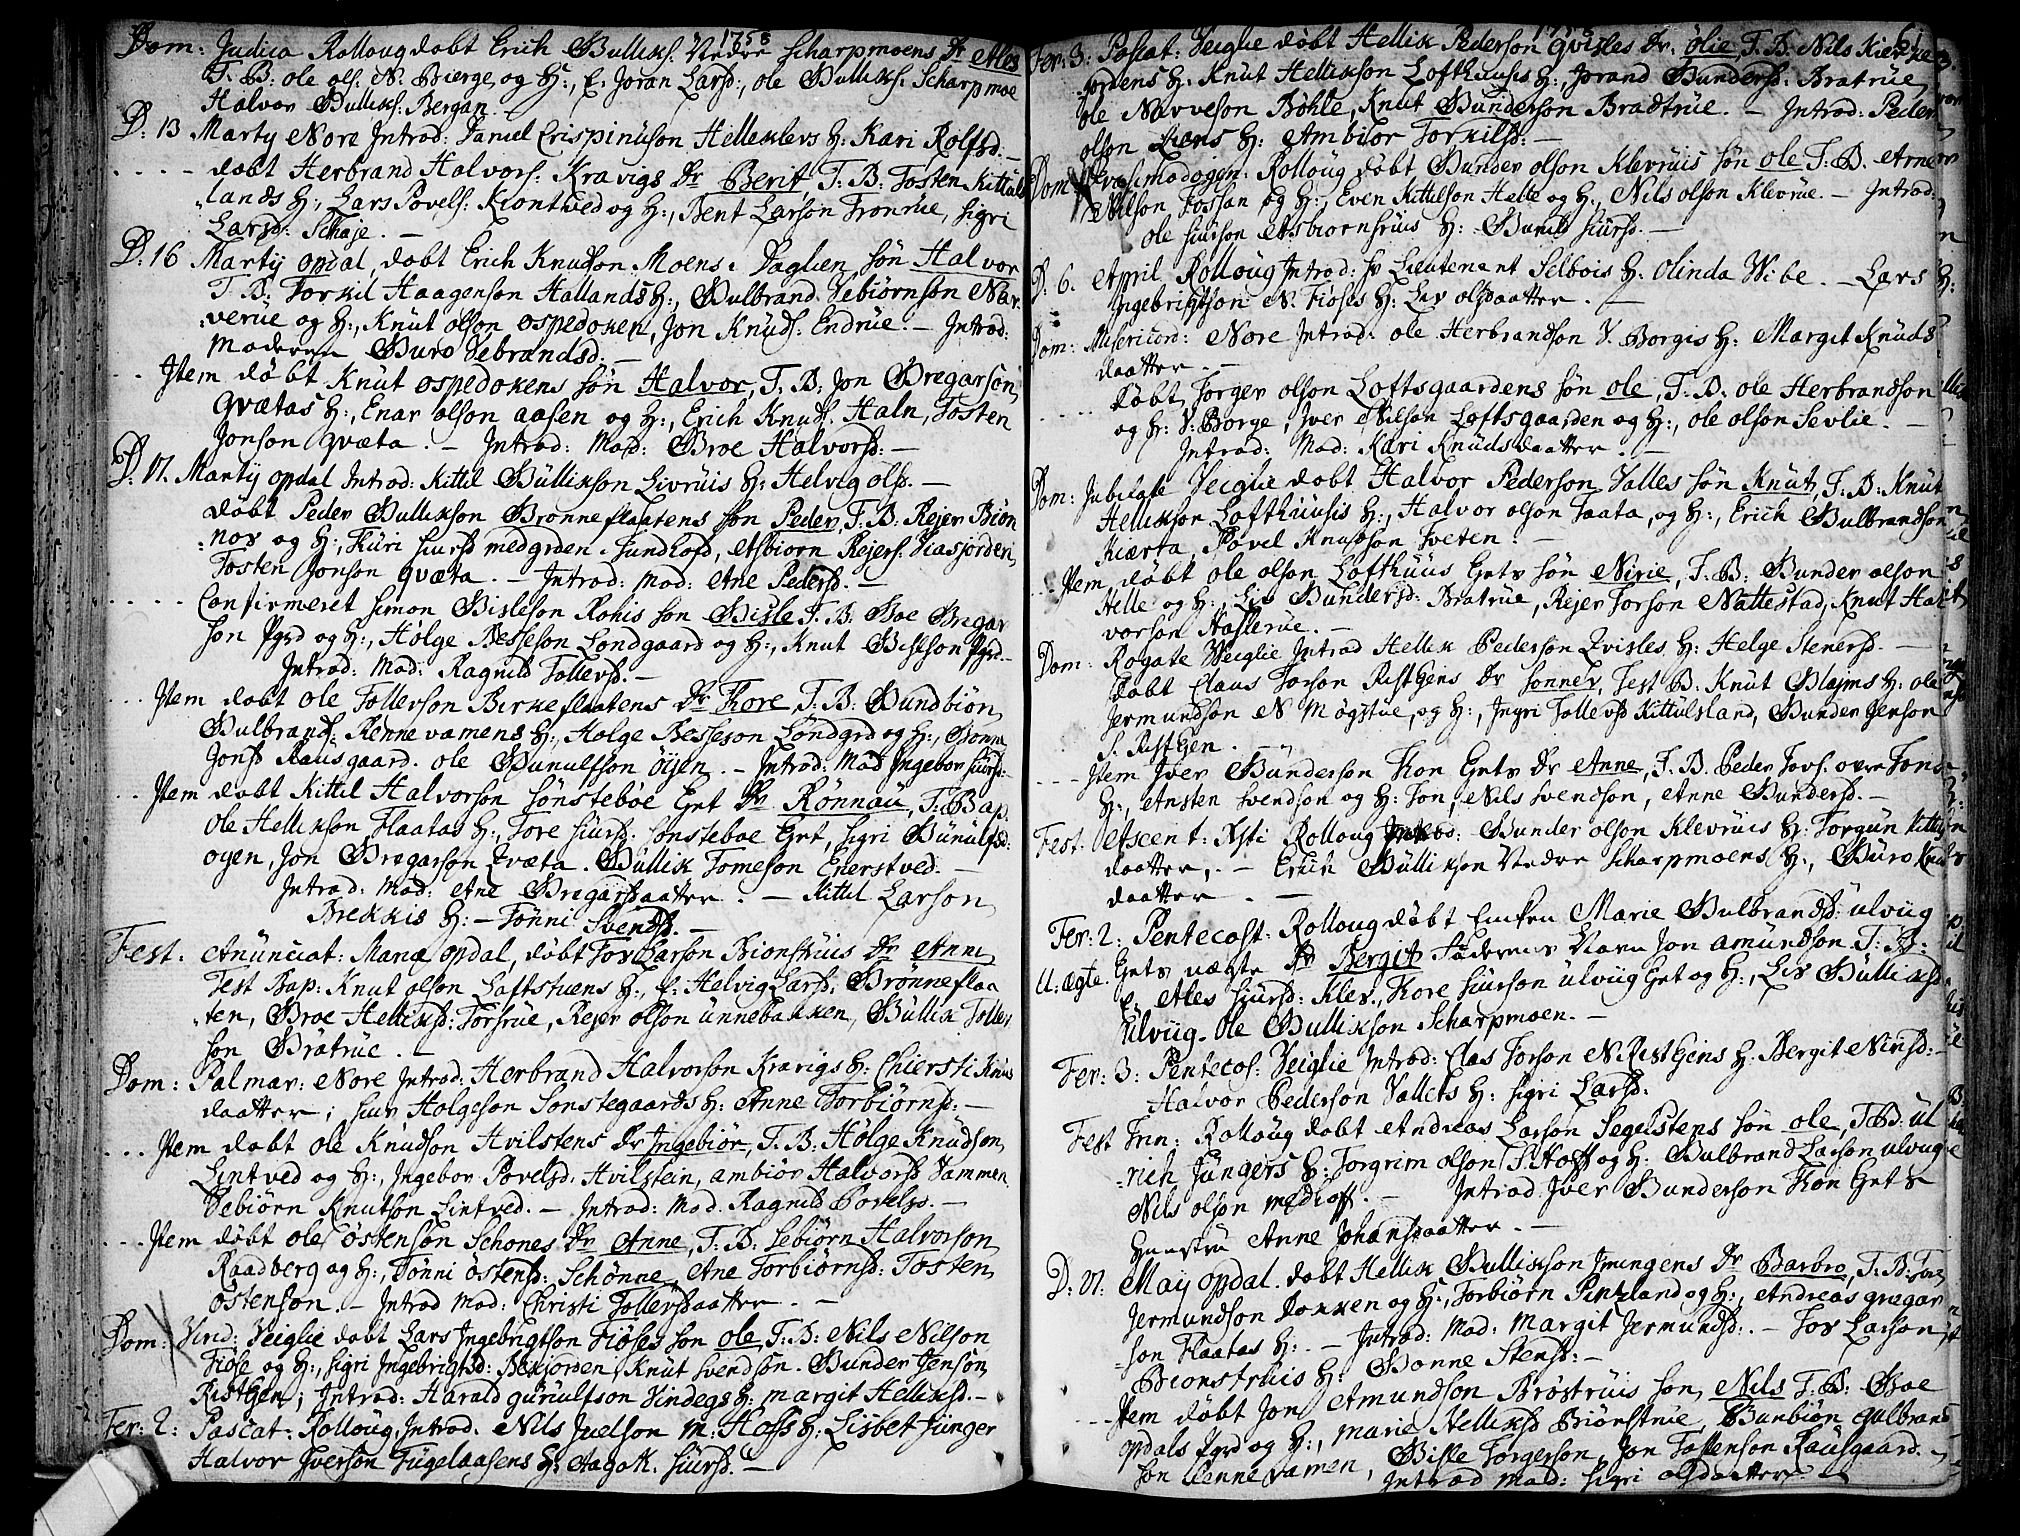 1758
Dom: Judica Rolloug døbt Erich Gulliks. Nedre Scharpmoens Dr Ales
T. B: ole ols. N. Bierge og H:, E. Joran Larsd:, ole Gulliks: Scharpmoe
Halvor Gulliks: Bergan.
D: 13 Marty Nore Introd: Daniel Crispinuson Helleklevs H: Kari Rolfsd:—
døbt Herbrand Halvors: Kravigs Dr Berit, T. B: Tosten Kittils
lands H:, Lars Povels: Kiontved og H:, Bent Larson Tronrue, sigri
Larsd: Schaje. —
D: 16 Martij opdal, døbt Erich Knudson Moens i Daglien søn Halvor
T. B: Torkil Haagenson Hallands H:, Gulbrand Vebiørnson Nør
verue og H:, Knut olson ospedoken, Jon Knuds: Endrue. — Introd:
Moderen Guro Vebrandsd: —
Item døbt Knut ospedokens søn Halvor, T. B: Jon Gregarson
qvætas H:, Enar olson aasen og H:, Erich Knuds. Haln, Tosten
Jonson qvæta. — Introd: Mod: Groe Halvorsd: —
D: 17. Martij opdal Introd: Kittil Gullikson Livruis H: Helvig olsd. —
døbt Peder Gullikson Brønneflaatens søn Peder, T. B. Rejer Biøn
nos og H:, Turi siursd medgrden i sundhofd, Asbiørn Rejers: Viasjorden
Tosten Jonson qvæta. — Introd: Mod: Ane Pedersd. —
Confirmeret Simon Gisleson Rohis søn Gisle T. B. Goe Gregar
son Pgrd og H:, Holge Besseson Londgaard og H:, Knut Gislson Pgrd—
Introd: Mod: Ragnild Tollevsd. —
Item døbt ole Tollevson Birkeflaatens Dr Tore, T. B. Gundbiøn
Gulbrands: Rennevamens H:, Holge Besseson Londgrd og H:, Gonne
Jonsd Rausgaard. ole Gunulfson øyen. — Introd: Mod Ingebor siursd:
Item døbt Kittil Halvorson sønstebøe Eyet Dr Rønnau, T. Bap.
ole Hellikson Flaatas H:, Tore siursd. sønstebøe Eyet, sigri Gunulfsd:
oyen, Jon Gregarson Qvæta. Gullik Tomeson Enerstved. —
Introd: Mod: Ane Gregarsdaatter. — Kittil Larson
Brekkis H: — Tønni Svendsd. —
Fest. Anunciat: Maria opdal, døbt Tov Larson Bionstruis Dr Anne
Test Bap: Knut olson Loftstuens H:, E. Helvig Larsd: Brønneflaa
ten, Groe Helliksd: Torsrue, Rejer olson unnebakken, Gullik Tollev
son Bratrue. —
Dom: Palmar: Nore Introd: Herbrand Halvorson Kravigs H: Chiersti Knuds
daatter; siur Holgeson Sønstegaards H: Anne Torbiørnsd: —
Item døbt ole Knudson Hvilstens Dr Ingebiør, T. B: Holge Knudson
Lintved og H:, Ingebor Povelsd. Hvilstein, ambiør Halvorsd Vammen
Vebiørn Knutson Lintved. — Introd: Mod. Ragnild Povelsd. —
Item døbt ole østenson Schones Dr Anne, T. B. Lebiørn Halvorson
Raadberg og H:, Tønni østensd: Schønne, Ane Torbiørnsd: Tosten
østenson. — Introd Mod: Christi Tollevsdaatter. —
Dom: Vind: Veiglie døbt Lars Ingebrigtson Fiøses søn ole, T. B: Nils Nilson
Fiøse og H:, sigri Ingebrigtsd: Bekjorden, Knut svendson. Gunder Jenson
Ristgien; Introd: Harald gunulfson Vindegs H: margit Helliksd. —
Fer: 2: Pascat: Rolloug, Introd. Nils Juelson M: Hoss H: Lisbet Jünger
Halvor Iverson Fugelaasens H: Aagot K: siursd. —
61
Fer: 3: Pascat: Veiglie døbt Hellik Pederson qvisles Dr. olie, T. B. Nils Kierke
jordens H: Knut Hellikson Lofthuusis H:, Jorand Gundersd: Bratrue
ole Narveson Bøhle, Knut Gunderson Bradtrue. — Introd: Peder
olson Liens H: Ambiløv Torkilsd: —
Dom Qvasimodogen: Rolloug døbt, Gunder olson Klevruis søn ole T. B. Arne
Nilson Fossan og H:, Even Kittelson Helte og H:, Nils olson Klevrue. — Introd:
ole siurson Asbiornsruis H: Gunild siursd. —
D: 6. April Rolloug Introd: Hr Lieutenant Selbois H. Olinda Wibe. — Lars
Ingebrigtson N. Fiøses H: Liv olsdaatter. —
Dom: Misericord: Nore Introd: ole Herbrandson V. Borgis H: Margit Knuds
daatter. —
døbt Torger olson Loftsgaardens søn ole, T. B. ole Herbrandson
og H: V: Borge, Iver Nilson Loftsgaarden og H:, ole olson Sevlie. —
Introd: Mod: Kari Knudsdaatter. —
Dom: Jubilate Veiglie døbt Halvor Pederson Valles søn Knut, T. B: Knut
Hellikson Lofthuusis H:, Halvor olson Taata, og H:, Erich Gulbrandson
Kiærta, Povel Knudson Tveten. —
Item døbt ole olson Lofthuus Eyets søn Nirie, T. B: Gunder olson
Helle og H:, Liv Gundersd: Bratrue, Rejer Torson Nattestad, Knut Hal
vorson Haslerue. —
Dom: Rogate Veiglie Introd Hellik Pederson Qvisles H: Helge Stenersd. —
døbt Claus Torson Ristgiens Dr sønnev, Test B. Knut Glajms H: ole
Jermundson N Møgstue, og H:, Ingri Tollevsd Kittilsland, Gunder Jenson
S. Ristgien. —
Item Iver Gunderson Kon Eyets Dr Anne, T. B. Peder Tovs. øvre Fond
H:, Ansten svendson og H: Fon, Nils svendson, Anne Gundersd. —
Fest. Ascent: Xsti Rolloug Introd: Gunder olson Klevruis H: Torgun Kittils
daatter, — Erich Gullikson Nedre Scharpmoens H:, Guro Knuds
daatter. —
Fer: 2: Pentecost: Rolloug døbt Enken Marie Gulbrandsd: ulviig
U: ægte. Eyets uægte Dr Bergit Faderens Navn Jon amundson T. B:
E. Ales siursd: Klev, Tore siurson ulviig Eyet og H:, Liv Gulliksd
ulviig. ole Gullikson Scharpmoen. —
Fer: 3: Pentecos: Veiglie Introd: Clas Torson N Ristgiens H: Bergit Nirisd: —
Halvor Pederson Vallets H: sigri Larsd:
Fest Trin: Rolloug døbt Andreas Larson Segelstens søn ole, T. B: ul
rich Jüngers H: Torgrim olson S. Hoff og H: Gulbrand Larson ulvüg
Nils olson medhoff. — Introd Iver Gunderson Kon Eyets
Huustru Anne Johansdaatter. —
D: 17: May opdal. døbt Hellik Gullikson Jmingens Dr Barbro, T. B: Tore
Jermundson Dokken og H:, Torbiørn Pintzland og H:, Andreas gregar
son Flaatas H:. — Introd: Mod: Margit Jermundsd:. — Tov Larson
Bionstruis H: Gonne Stensd: —
Item døbt Jon Amundson Brøstruis søn, Nils T. B: Goe
opdals Pgrd og H:, marie Helliksd Biørnstrue, Gunbiøn gulbrand
son Rennevamen, Gisle Torgerson, Jon Tostenson Rausgaard. —
Introd Mod: sigri olsdaatter. —